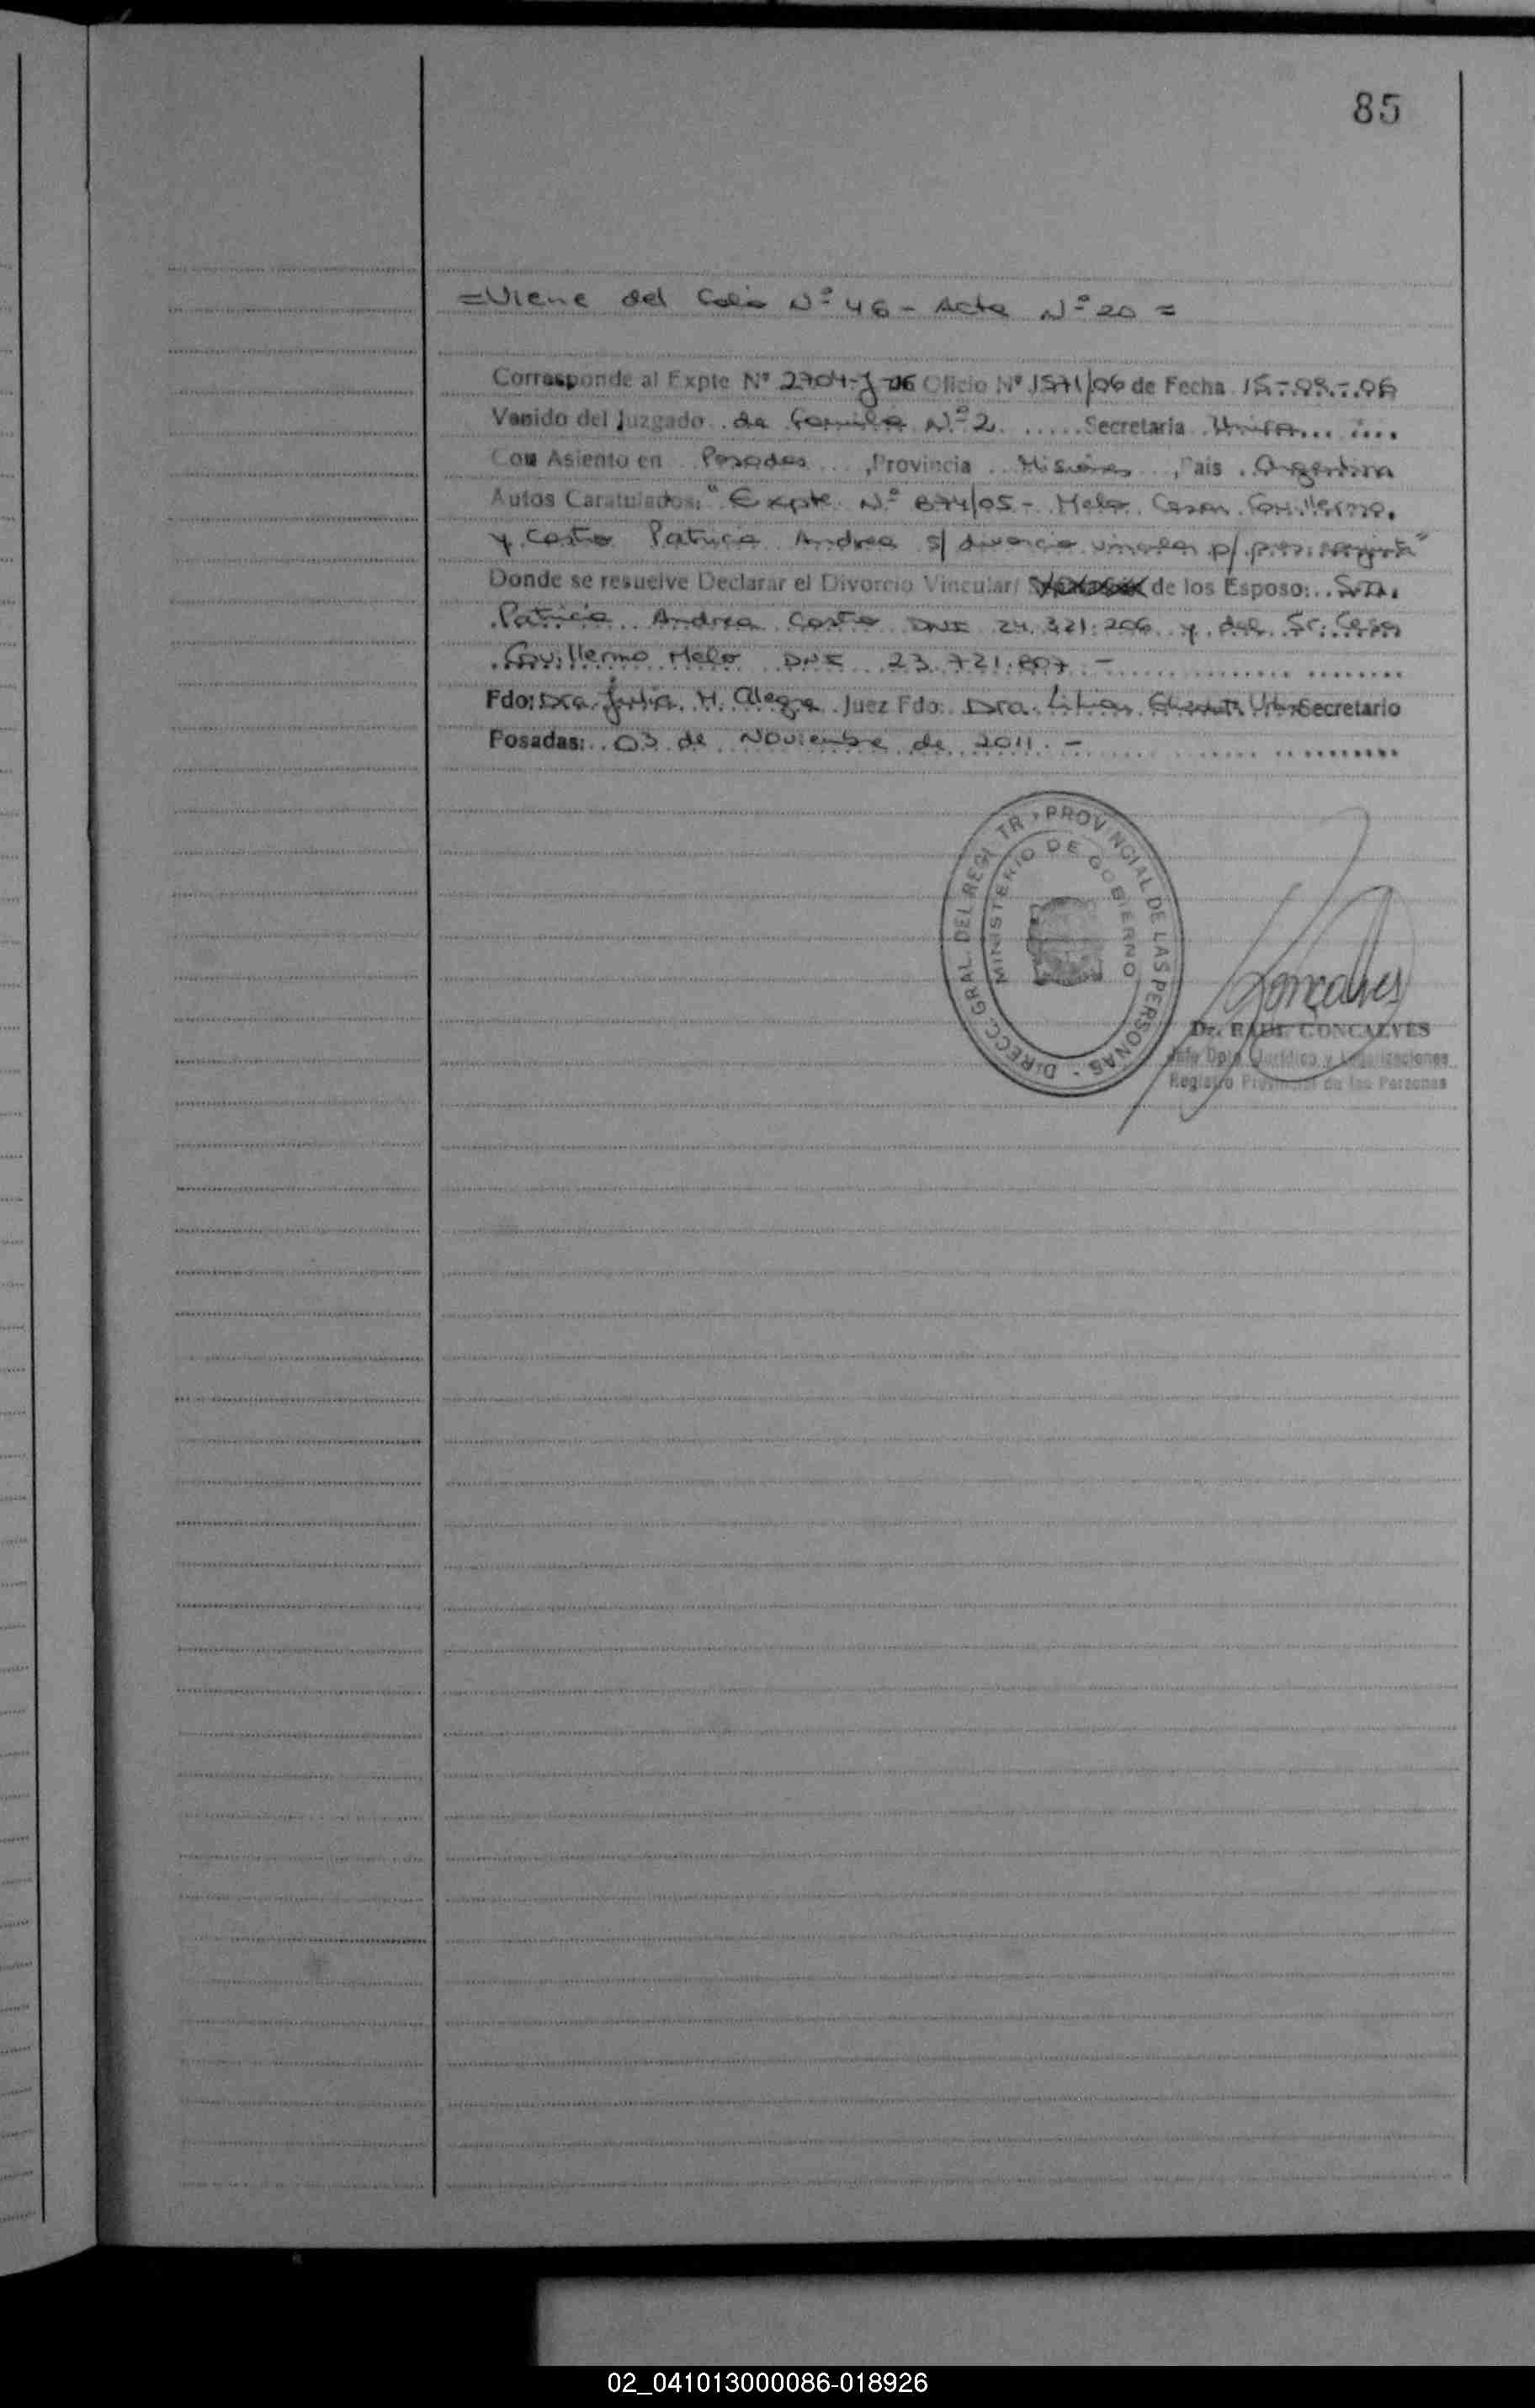 85
=Viene del Folio Nº 46 - Acta Nº 20 =
Corresponde al Expte Nº 2704-J-06 Oficio Nº 1571/06 de Fecha 15-09-06
Venido del Juzgado de Familia Nº 2 ..... Secretaria Unica
Con Asiento en Posadas ..., Provincia .. Misiones .., Pais . Argentina
Autos Caratulados: "Expte Nº 874/05 - Melo Cesar Guillermo.
y Castro Patricia Andrea s/ divorcio vincular p/ pres. conjunta"
Donde se resuelve Declarar el Divorcio Vincular/ de los Esposo:.. Sra.
Patricia Andrea Castro DNI 24.321.206 y del Sr. Cesar
Guillermo Melo DNI 23.721.807 -
Fdo: Dra. Julia H. Alegre Juez Fdo: Dra. Lilian Secretario
Posadas: 03 de Noviembre de 2011. -
DIRECC. GRAL. DEL REGI TR PROVINCIAL DE LAS PERSONAS -
MINISTERIO DE GOBIERNO
Goncalves
Dr. RAUL GONCALVES
Jefe Dpto. Jurídico y Legalizaciones
Registro Provincial de las Personas
02_041013000086-018926